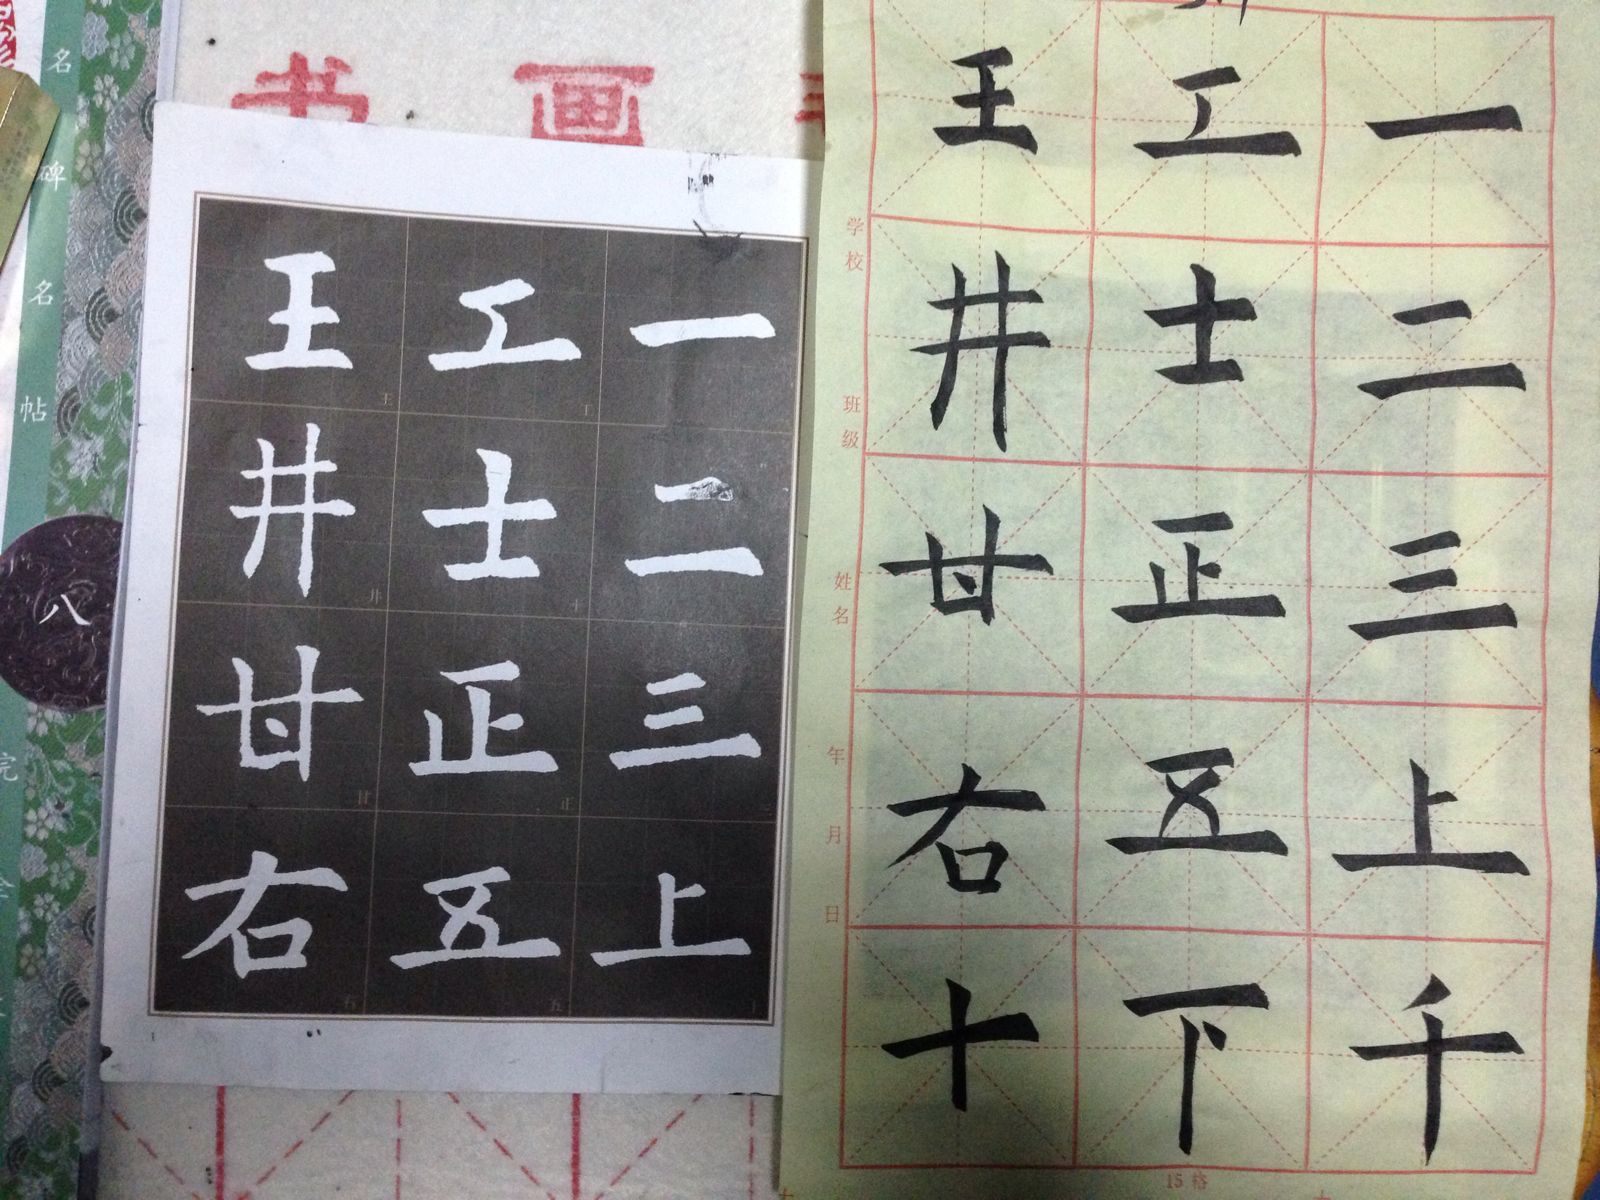 名
碑
名
帖
八
院
书画
王工一
井士二
甘正三
右五上
王
工
井
士
甘
正
三
右
五
上
王工一
井士二
甘正三
右五上
十下千
学校
班级
姓名
年
月
日
15格